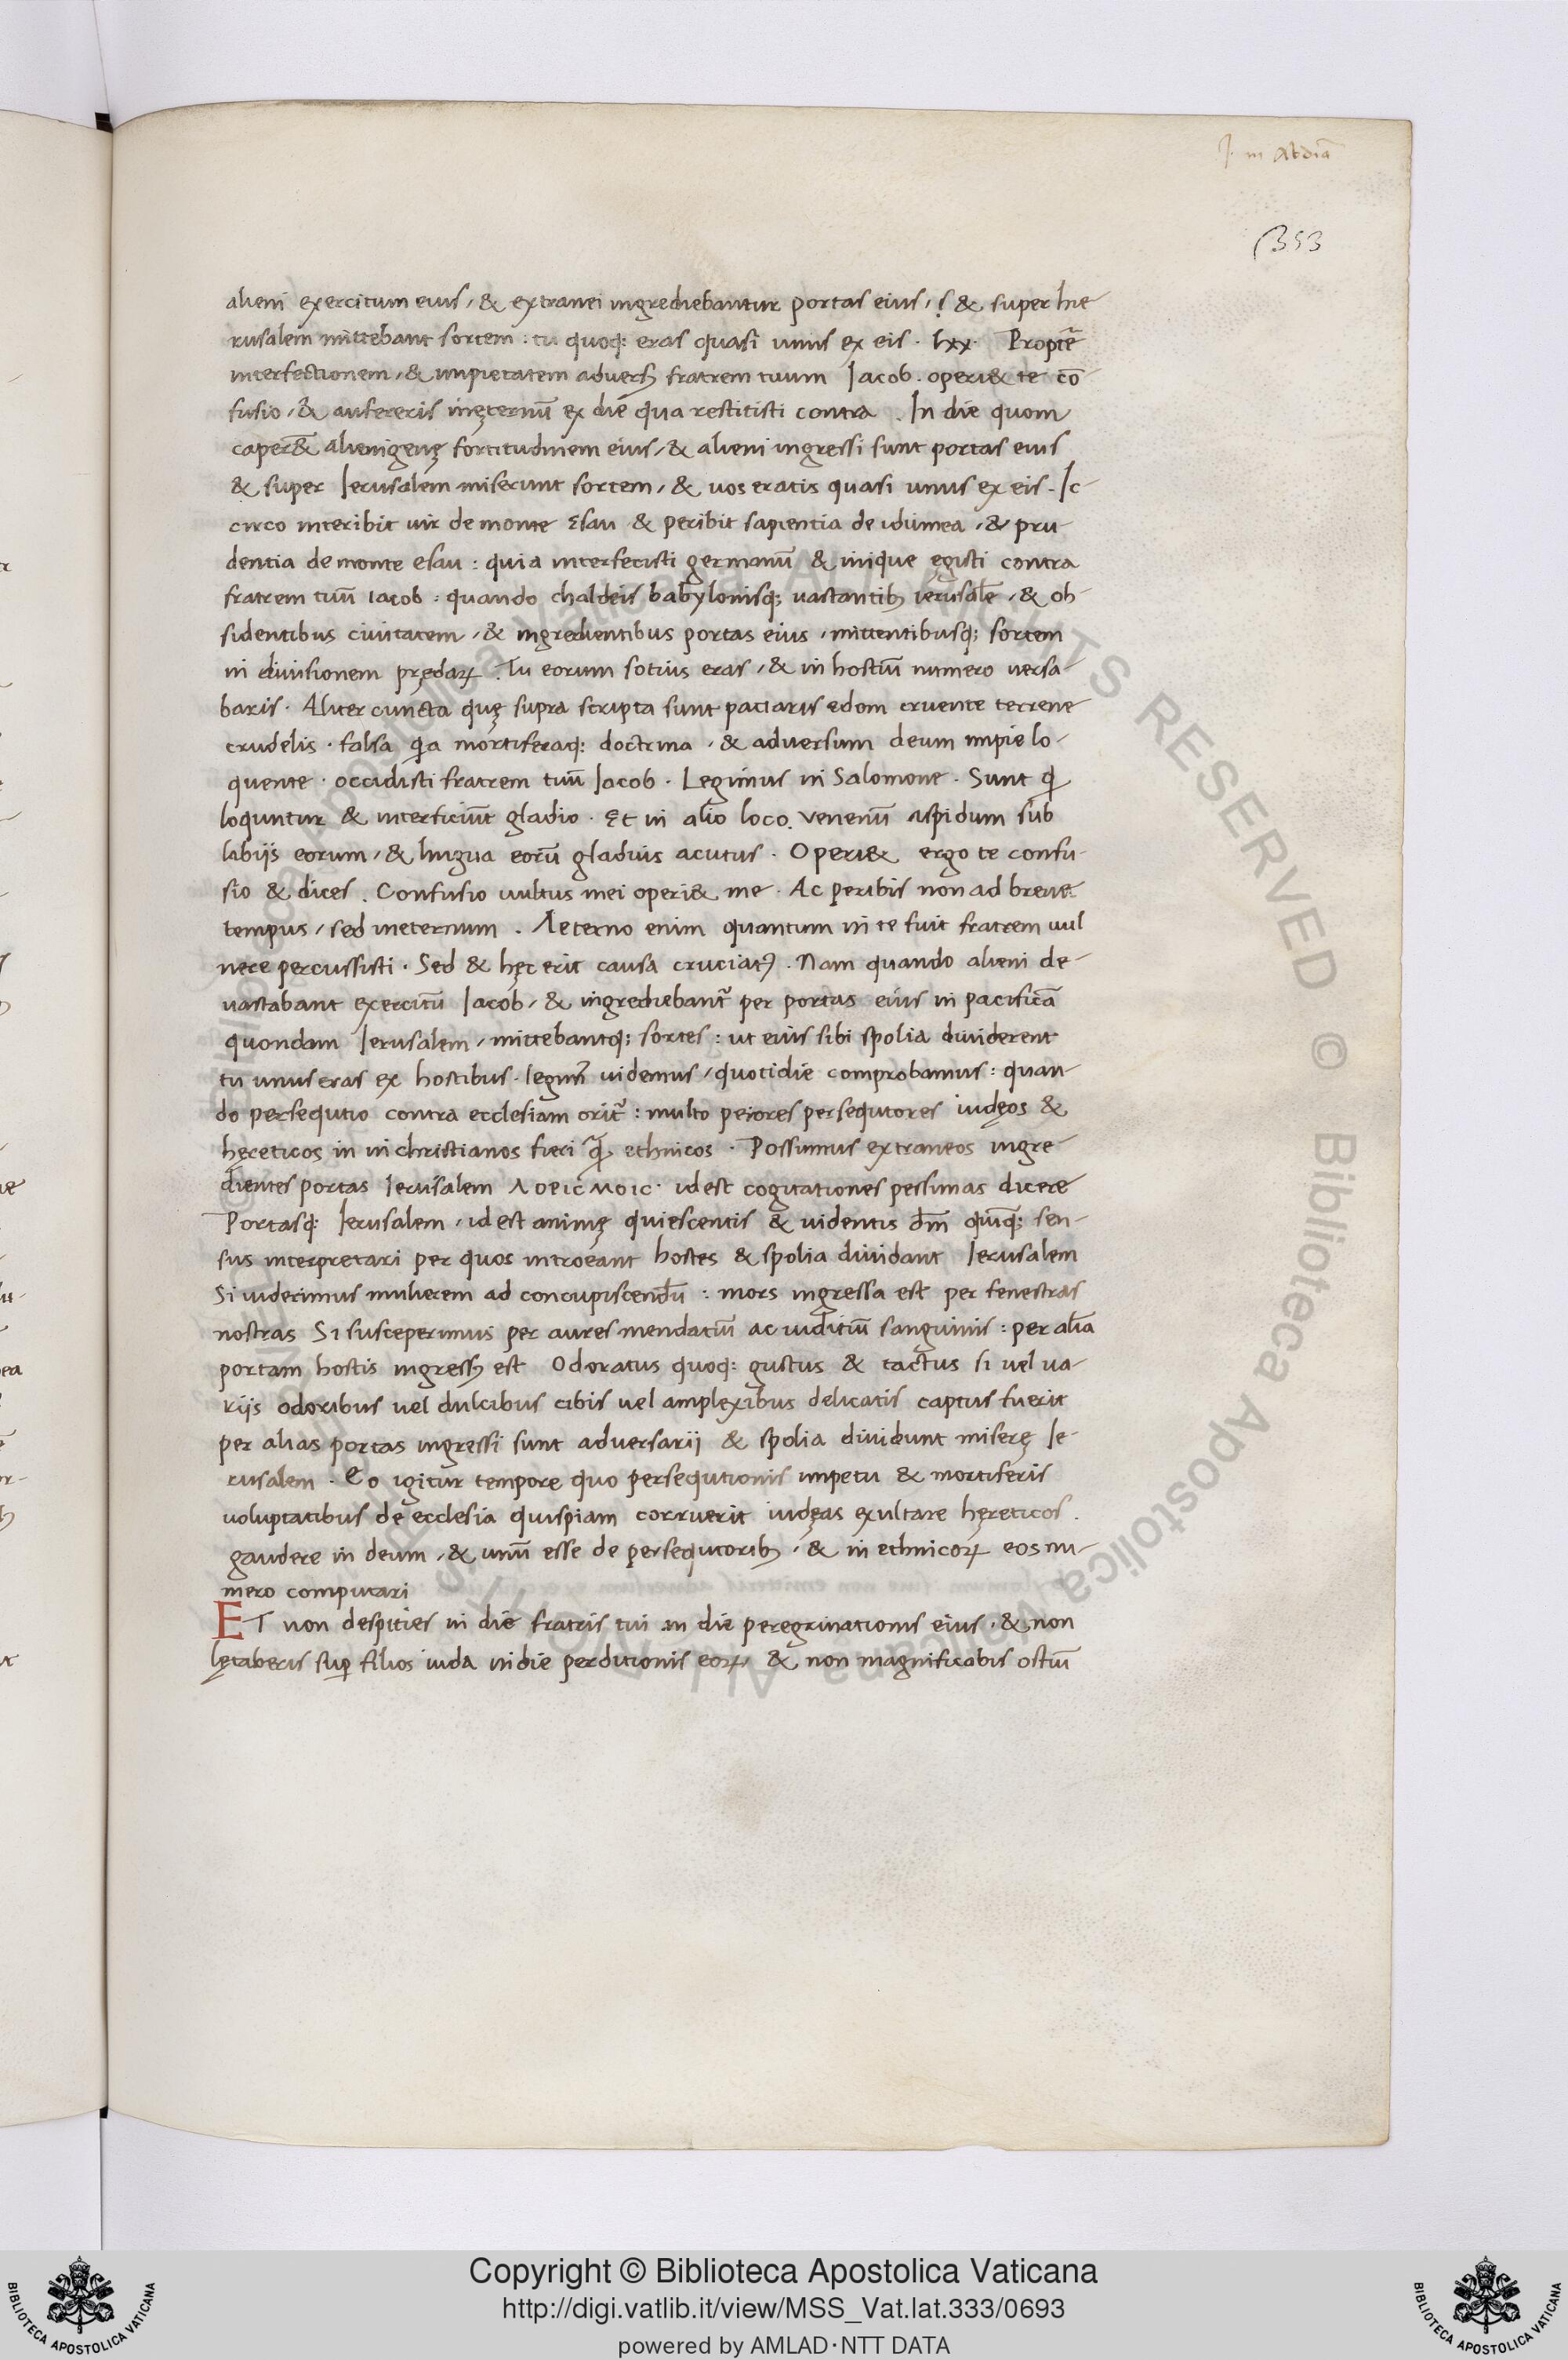 J. in Abdiā
353
alieni exercitum eius, & extranei ingrediebantur portas eius,! & super hie-
rusalem mittebant sortem : tu quoq; eras quasi unus ex eis. lxx. Proptē
interfectionem, & impietatem advers9 fratrem tuum Jacob. operi& te cō-
fusio, & aufereris inęternū ex die qua restitisti contra . In die quom
caper& alienigenę fortitudinem eius, & alieni ingressi sunt portas eius
& super Jerusalem miserunt sortem, & vos eratis quasi unus ex eis. Jc-
circo interibit uir de monte Esau & peribit sapientia de idumea, & pru-
dentia de monte esau : quia interfecisti germanū & inique egisti contra
fratrem tuū iacob : quando chaldeis babylonisq; vastantib9 ierusalē, & ob-
sidentibus civitatem, & ingredientibus portas eius, mittentibusq; sortem
in divisionem prędaꝝ. Tu eorum sotius eras, & in hostiū numero versa-
baris. Aliter cuncta quę supra scripta sunt paciaris edom cruente terrene
crudelis. falsa q̄a mortiferaq; doctrina, & adversum deum impie lo-
quente. occidisti fratrem tuū Jacob. Legimus in Salomone. Sunt q̄
loquntur & interficiūt gladio. Et in alio loco. venenū aspidum sub
labijs eorum, & lingua eorū gladius acutus. Operi& ergo te confu-
sio & dices. Confusio vultus mei operi& me. Ac peribis non ad breve
tempus, sed ineternum. Aeterno enim quantum in te fuit fratrem vul
nere percussisti. Sed & hęc erit causa cruciat9. Nam quando alieni de-
vastabant exercitū Jacob, & ingrediebant̄ per portas eius in pacificā
quondam Jerusalem, mittebantq; sortes : ut eius sibi spolia dividerent
tu unus eras ex hostibus. legim9 videmus, quotidie comprobamus : quan-
do persequtio contra ecclesiam orit̄ : multo peiores persequtores iudęos &
hęreticos in in christianos fieri q̄ ethnicos. Possumus extraneos ingre-
dientes portas Jerusalem ΛΟΓΙСΜΟΙС. idest cogitationes pessimas dicere
Portasq; Jerusalem, id est animę quiescentis & videntis dm̄ quīq; sen-
sus interpretari per quos introeant hostes & spolia dividant Jerusalem
Si viderimus mulierem ad concupiscendū : mors ingressa est per fenestras
nostras Si susceperimus per aures mendatiū ac iuditiū sanguinis : per aliā
portam hostis ingress9 est Odoratus quoq; gustus & tactus si vel va-
rijs odoribus vel dulcibus cibis vel amplexibus delicatis captus fuerit
per alias portas ingressi sunt adversarij & spolia dividunt miserę Je-
rusalem. Eo igitur tempore quo persequtionis impetu & mortiferis
voluptatibus de ecclesia quispiam corruerit iudęas exultare hęreticos.
gaudere in deum, & unū esse de persequtorib9, & in ethnicoꝝ eos nu-
mero computari
ET non despities in die fratris tui in die peregrinationis eius, & non
lętaberis sup̄ filios iuda in die perditionis eoꝝ, & non magnificabis ostiū
Copyright © Biblioteca Apostolica Vaticana
http://digi.vatlib.it/view/MSS_Vat.lat.333/0693
powered by AMLAD·NTT DATA